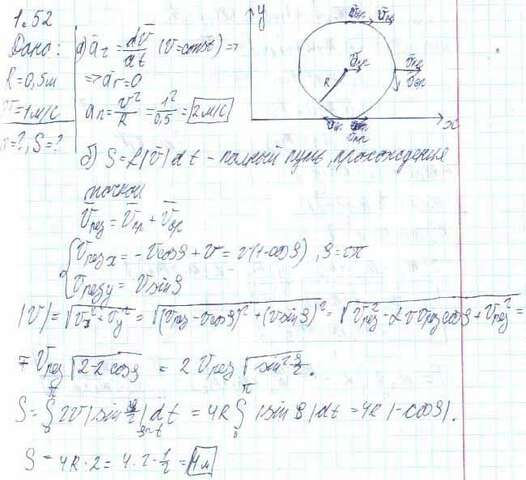 1.52
Дано:
R=0,5м
V=1м/с
=?, S=?
а) a̅τ = dV̅/dt (V=const) ⇒
⇒ aτ=0
an = V²/R = 1²/0,5 = 2 м/с
y
V̅пр
V̅вр
R
x
б) S = ∫|V̅|dt - полный путь, прохождения
точкой
V̅рез = V̅пр + V̅вр
{Vрез x = -Vcosφ + V = V(1-cosφ)
Vрез y = V sinφ
|V| = √(Vx² + Vy²) = √((Vрез - Vcosφ)² + (V sinφ)²) = √(Vрез² - 2VVрез cosφ + Vрез²) =
= Vрез √(2-2cosφ) = 2Vрез √(sin² φ/2).
S = ∫ 2V|sin φ/2| dt = 4R ∫ |sin φ| dt = 4R |-cosφ|.
S = 4R·2 = 4·2·1/2 = 4м